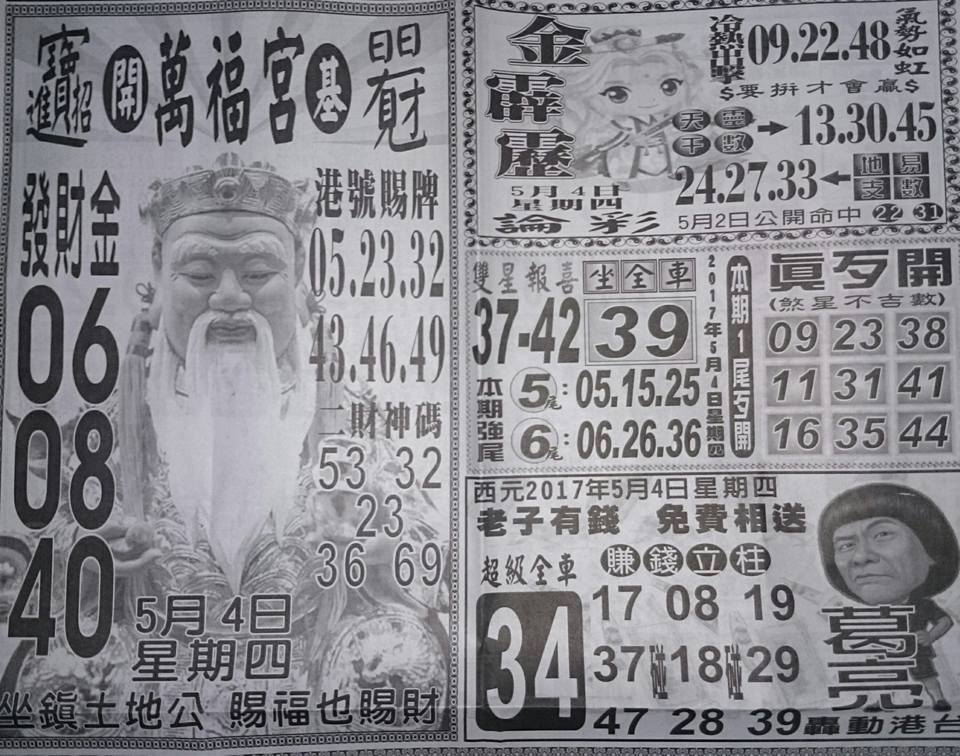 招財進寶
開基
萬福宮
發財金
06
08
40
港號賜牌
05.23.32
43.46.49
二財神碼
53 32
23
36 69
5月4日
星期四
坐鎮土地公 賜福也賜財
金霹靂
冷熱出擊
09.22.48
氣勢如虹
$要拚才會贏$
天干
靈數
13.30.45
24.27.33
地支
易數
5月4日
星期四
論彩
5月2日公開命中 22 31
雙星報喜
37-42
坐全車
39
本期強尾
5尾:05.15.25
6尾:06.26.36
2017年5月4日星期四
本期1尾歹開
真歹開
(煞星不吉數)
09 23 38
11 31 41
16 35 44
西元2017年5月4日星期四
老子有錢 免費相送
超級全車
34
賺錢立柱
17 08 19
37碰18碰29
47 28 39
葛亮
轟動港台